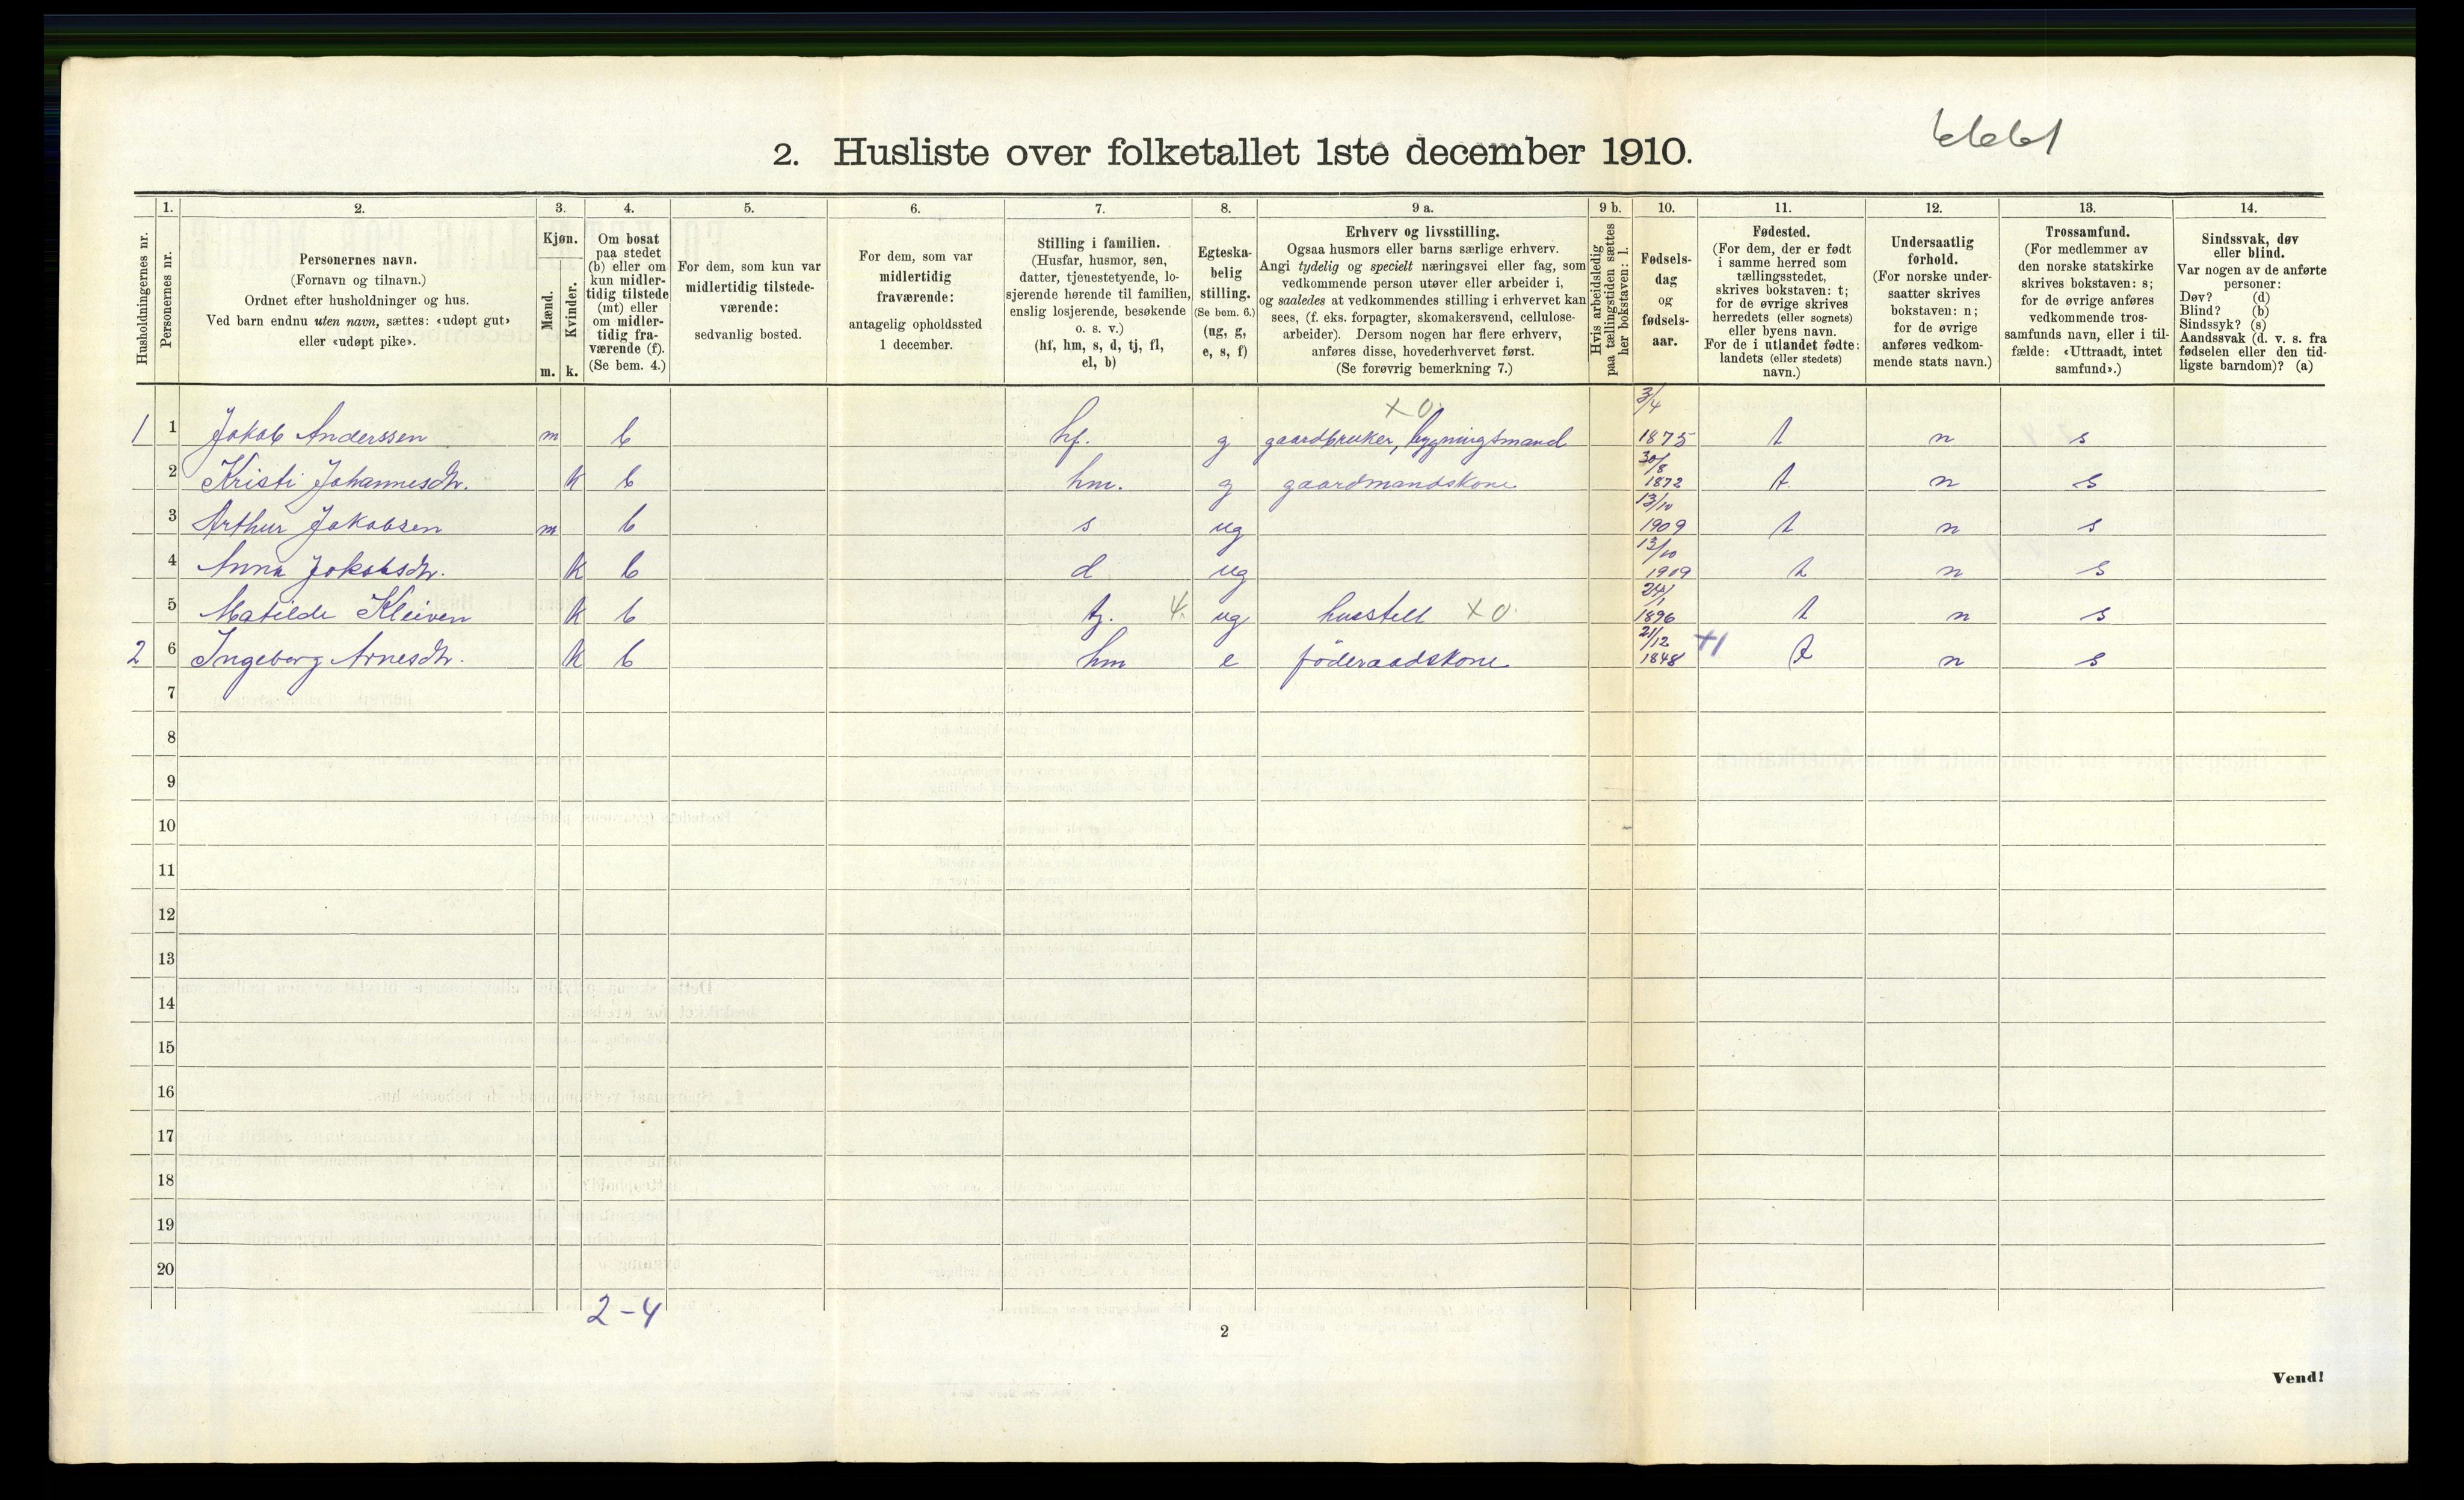 6661
2. Husliste over folketallet 1ste december 1910.
1. 2. 3. 4. 5. 6. 7. 8. 9 a. 9 b. 10. 11. 12. 13. 14.
Husholdningernes nr.
Personernes nr.
Personernes navn.
(Fornavn og tilnavn.)
Ordnet efter husholdninger og hus.
Ved barn endnu uten navn, sættes: «udøpt gut»
eller «udøpt pike».
Kjøn.
Mænd.
Kvinder.
m. k.
Om bosat
paa stedet
(b) eller om
kun midler-
tidig tilstede
(mt) eller
om midler-
tidig fra-
værende (f).
(Se bem. 4.)
For dem, som kun var
midlertidig tilstede-
værende:
sedvanlig bosted.
For dem, som var
midlertidig
fraværende:
antagelig opholdssted
1 december.
Stilling i familien.
(Husfar, husmor, søn,
datter, tjenestetyende, lo-
sjerende hørende til familien,
enslig losjerende, besøkende
o. s. v.)
(hf, hm, s, d, tj, fl,
el, b)
Egteska-
belig
stilling.
(Se bem. 6.)
(ug, g,
e, s, f)
Erhverv og livsstilling.
Ogsaa husmors eller barns særlige erhverv.
Angi tydelig og specielt næringsvei eller fag, som
vedkommende person utøver eller arbeider i,
og saaledes at vedkommendes stilling i erhvervet kan
sees, (f. eks. forpagter, skomakersvend, cellulose-
arbeider). Dersom nogen har flere erhverv,
anføres disse, hovederhvervet først.
(Se forøvrig bemerkning 7.)
Hvis arbeidsledig
paa tællingstiden sættes
her bokstaven: l.
Fødsels-
dag
og
fødsels-
aar.
Fødested.
(For dem, der er født
i samme herred som
tællingsstedet,
skrives bokstaven: t;
for de øvrige skrives
herredets (eller sognets)
eller byens navn.
For de i utlandet fødte:
landets (eller stedets)
navn.)
Undersaatlig
forhold.
(For norske under-
saatter skrives
bokstaven: n;
for de øvrige
anføres vedkom-
mende stats navn.)
Trossamfund.
(For medlemmer av
den norske statskirke
skrives bokstaven: s;
for de øvrige anføres
vedkommende tros-
samfunds navn, eller i til-
fælde: «Uttraadt, intet
samfund».)
Sindssvak, døv
eller blind.
Var nogen av de anførte
personer:
Døv? (d)
Blind? (b)
Sindssyk? (s)
Aandssvak (d. v. s. fra
fødselen eller den tid-
ligste barndom)? (a)
X 0. 3/4
1 1 Jakob Anderssen m b hf. g gaardbruker, bygningsmand 1875 t n s
30/8
2 Kristi Johannesdtr. k b hm. g gaardmandskone 1872 t. n s
13/10
3 Arthur Jakobsen m b s ug 1909 t n s
13/10
4 Anna Jakobsdtr. k b d ug 1909 t n s
24/1
5 Matilde Kleiven k b tj. 4. ug husstell X 0. 1896 t n s
21/12
2 6 Ingeborg Arnesdtr. k b hm e föderaadskone 1848 +1 t n s
7
8
9
10
11
12
13
14
15
16
17
18
19
20
2-4
2
Vend!